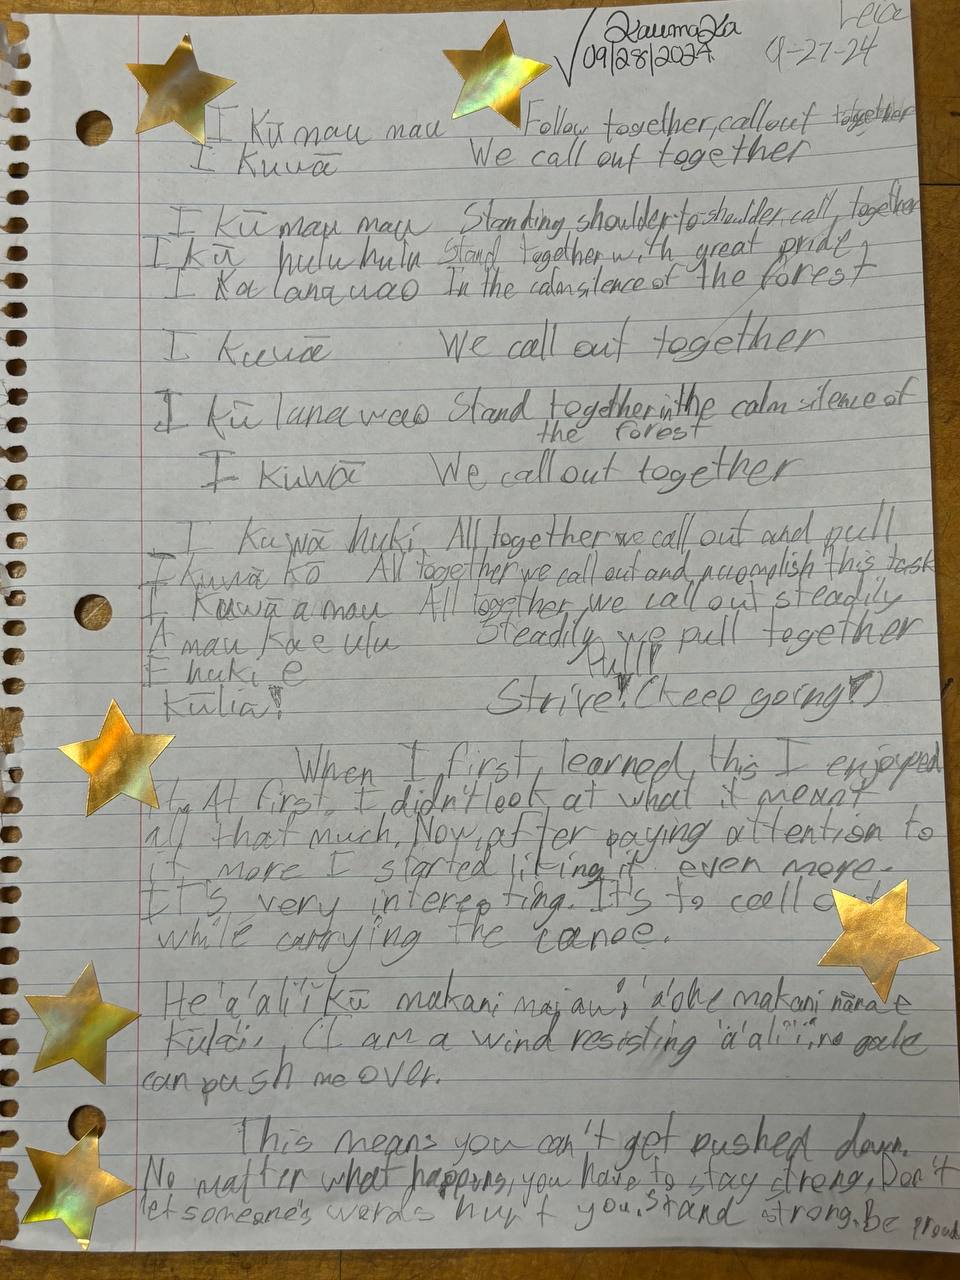 KaumaKa
09/28/2024
Leia
9-27-24
I Kū mau mau Follow together, callout together
I Kuwā We call out together
I Kū mau mau Standing shoulder-to-shoulder, call, together
I kū hulu hulu Stand together, with great pride,
I Ka lana wao In the calm silence of the forest
I Kuwā We call out together
I kū lana wao Stand together in the calm silence of
the forest
I kuwā We call out together
I Kuwā huki All together we call out and pull
I Kuwā kō All together, we call out and accomplish this task
I Kuwā a mau All together, we call out steadily
A mau Ka e ulu Steadily we pull together
E huki e Pull!
Kūlia! Strive! (keep going!)
When I first learned this I enjoyed
it. At first, I didn't look at what it meant
all that much. Now, after paying attention to
it more I started liking it even more.
It's very interesting. It's to call out
while carrying the canoe.
He 'a'ali'i Kū makani mai au; 'a'ohe makani nāna e
Kūla'i. (I am a wind resisting 'a'ali'i, no gale
can push me over.
This means you can't get pushed down.
No matter what happens, you have to stay strong. Don't
let someone's words hurt you. Stand strong. Be proud